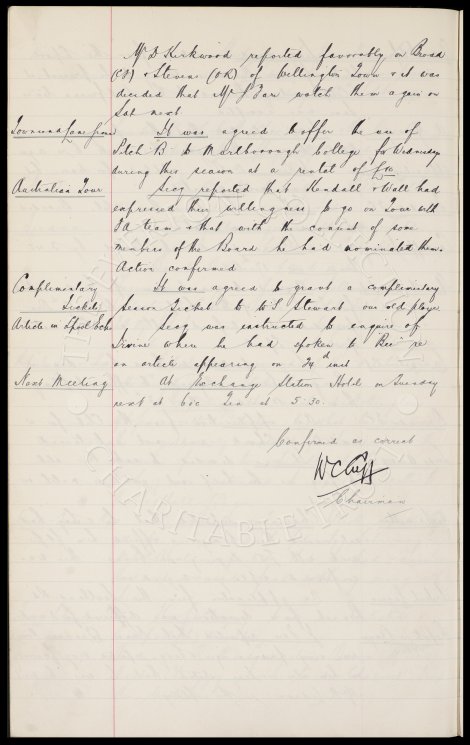 Mr D Kirkwood reported favorably on Broad
(CF) & Stevens (OR) of Wellington Town & it was
decided that Mr J Fare watch them again on
Sat next
Townsend Lane from It was agreed to offer the use of
Pitch "B" to Marlborough College for Wednesday
during this season at a rental of
Australian Tour Secy reported that Kendall & Wall had
expressed their willingness to go on Tour with
FA team & that with the consent of some
members of the Board he had nominated them.
Action confirmed
Complimentary It was agreed to grant a complimentary
Tickets Season Ticket to W S Stewart our old player
Article in Spool Echo Secy was instructed to enquire of
Irvine when he had spoken to "Bee" re
an article appearing on 24d inst
Next Meeting At Exchange Station Hotel on Tuesday
next at 6oc Tea at 5.30.
Confirmed as correct
W C Cuff
Chairman
CHARITABLE